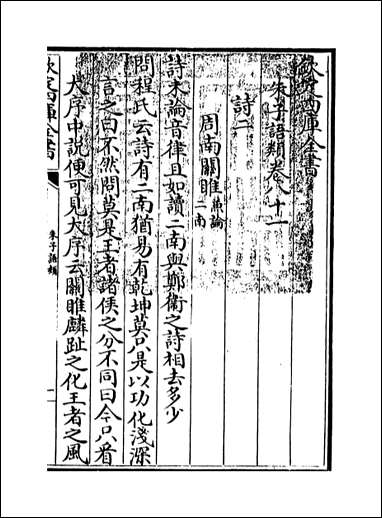 欽定四庫全書
朱子語類卷八十一
詩二
周南關雎兼論二南
詩未論音律且如讀二南與鄭衛之詩相去多少
問程氏云詩有二南猶易有乾坤莫只是以功化淺深
言之曰不然問莫是王者諸侯之分不同曰今只看
大序中說便可見大序云關雎麟趾之化王者之風
欽定四庫全書
朱子語類
一